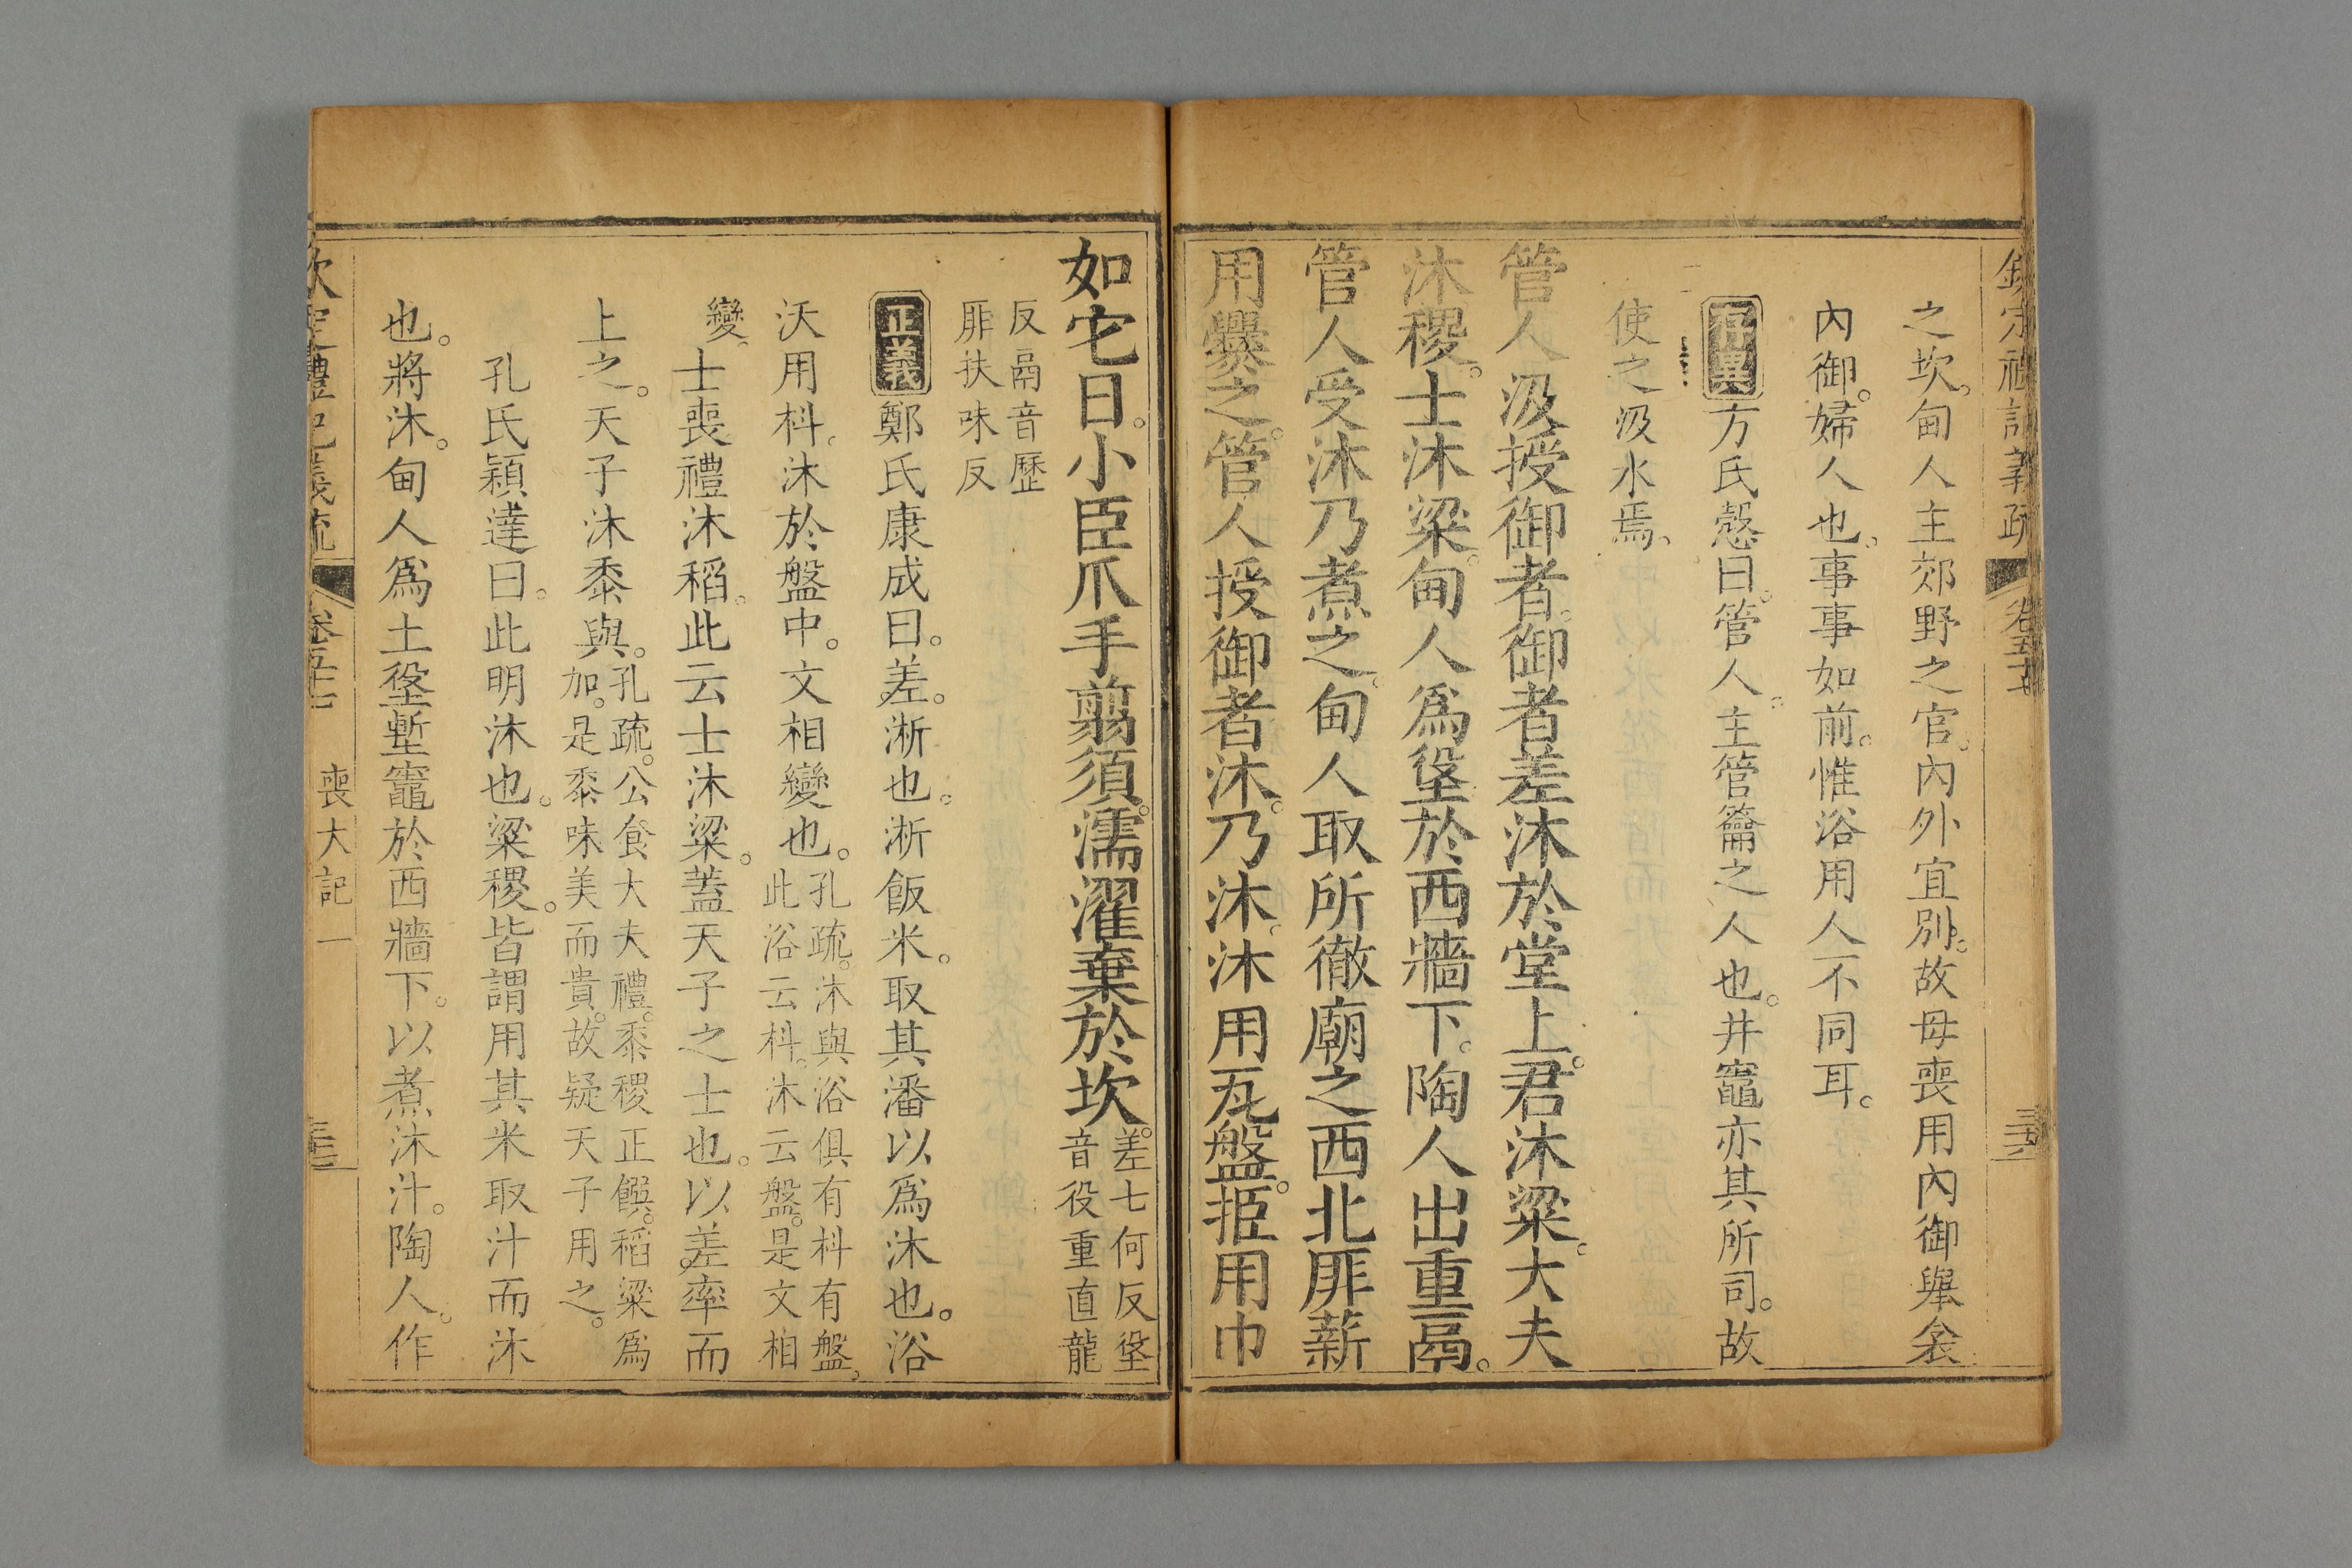 欽定禮記義疏 卷五十七
之坎。甸人主郊野之官。內外宜別。故母喪用內御舉衾
內御。婦人也。事事如前。惟浴用人不同耳。
存異 方氏慤曰。管人。主管籥之人也。井竈亦其所司。故
使之汲水焉。
管人汲授御者。御者差沐於堂上。君沐粱。大夫
沐稷。士沐粱。甸人爲垼於西牆下。陶人出重鬲。
管人受沐乃煮之。甸人取所徹廟之西北厞薪
用爨之。管人授御者沐。乃沐。沐用瓦盤。挋用巾
如它日。小臣爪手翦須。濡濯棄於坎。差七何反垼
音役重直龍
反鬲音歷
厞扶味反
正義 鄭氏康成曰。差。淅也。淅飯米。取其潘以爲沐也。浴
沃用枓。沐於盤中。文相變也。孔疏。沐與浴俱有枓有盤。
此浴云枓。沐云盤。是文相
變。士喪禮沐稻。此云士沐粱。蓋天子之士也。以差率而
上之。天子沐黍與。孔疏。公食大夫禮。黍稷正饌。稻粱爲
加。是黍味美而貴。故疑天子用之。
孔氏穎達曰。此明沐也。粱稷。皆謂用其米取汁而沐
也。將沐。甸人爲土垼塹竈於西牆下。以煮沐汁。陶人。作
欽定禮記義疏 卷五十七 喪大記一